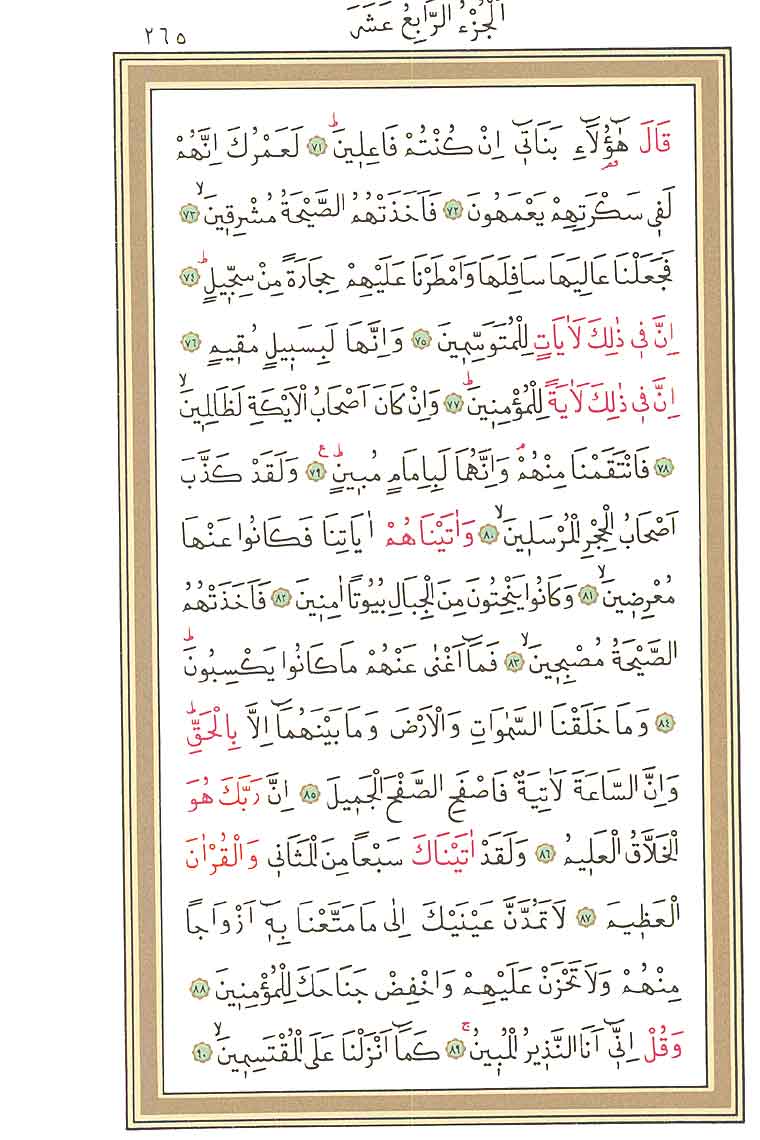 اَلْجُزْءُ الرَّابِعُ عَشَرَ
٢٦٥
قَالَ هٰٓؤُلَٓاءِ بَنَات۪ٓي اِنْ كُنْتُمْ فَاعِل۪ينَۜ ﴿٧١﴾ لَعَمْرُكَ اِنَّهُمْ
لَف۪ي سَكْرَتِهِمْ يَعْمَهُونَ ﴿٧٢﴾ فَاَخَذَتْهُمُ الصَّيْحَةُ مُشْرِق۪ينَۙ ﴿٧٣﴾
فَجَعَلْنَا عَالِيَهَا سَافِلَهَا وَاَمْطَرْنَا عَلَيْهِمْ حِجَارَةً مِنْ سِجّ۪يلٍۜ ﴿٧٤﴾
اِنَّ ف۪ي ذٰلِكَ لَاٰيَاتٍ لِلْمُتَوَسِّم۪ينَ ﴿٧٥﴾ وَاِنَّهَا لَبِسَب۪يلٍ مُق۪يمٍ ﴿٧٦﴾
اِنَّ ف۪ي ذٰلِكَ لَاٰيَةً لِلْمُؤْمِن۪ينَۜ ﴿٧٧﴾ وَاِنْ كَانَ اَصْحَابُ الْاَيْكَةِ لَظَالِم۪ينَۙ
﴿٧٨﴾ فَانْتَقَمْنَا مِنْهُمْۢ وَاِنَّهُمَا لَبِاِمَامٍ مُب۪ينٍۜ ع ﴿٧٩﴾ وَلَقَدْ كَذَّبَ
اَصْحَابُ الْحِجْرِ الْمُرْسَل۪ينَۙ ﴿٨٠﴾ وَاٰتَيْنَاهُمْ اٰيَاتِنَا فَكَانُوا عَنْهَا
مُعْرِض۪ينَۙ ﴿٨١﴾ وَكَانُوا يَنْحِتُونَ مِنَ الْجِبَالِ بُيُوتًا اٰمِن۪ينَ ﴿٨٢﴾ فَاَخَذَتْهُمُ
الصَّيْحَةُ مُصْبِح۪ينَۙ ﴿٨٣﴾ فَمَٓا اَغْنٰى عَنْهُمْ مَا كَانُوا يَكْسِبُونَۜ
﴿٨٤﴾ وَمَا خَلَقْنَا السَّمٰوَاتِ وَالْاَرْضَ وَمَا بَيْنَهُمَٓا اِلَّا بِالْحَقِّۜ
وَاِنَّ السَّاعَةَ لَاٰتِيَةٌ فَاصْفَحِ الصَّفْحَ الْجَم۪يلَ ﴿٨٥﴾ اِنَّ رَبَّكَ هُوَ
الْخَلَّاقُ الْعَل۪يمُ ﴿٨٦﴾ وَلَقَدْ اٰتَيْنَاكَ سَبْعًا مِنَ الْمَثَان۪ي وَالْقُرْاٰنَ
الْعَظ۪يمَ ﴿٨٧﴾ لَا تَمُدَّنَّ عَيْنَيْكَ اِلٰى مَا مَتَّعْنَا بِه۪ٓ اَزْوَاجًا
مِنْهُمْ وَلَا تَحْزَنْ عَلَيْهِمْ وَاخْفِضْ جَنَاحَكَ لِلْمُؤْمِن۪ينَ ﴿٨٨﴾
وَقُلْ اِنّ۪ٓي اَنَا النَّذ۪يرُ الْمُب۪ينُۚ ﴿٨٩﴾ كَمَٓا اَنْزَلْنَا عَلَى الْمُقْتَسِم۪ينَۙ ﴿٩٠﴾